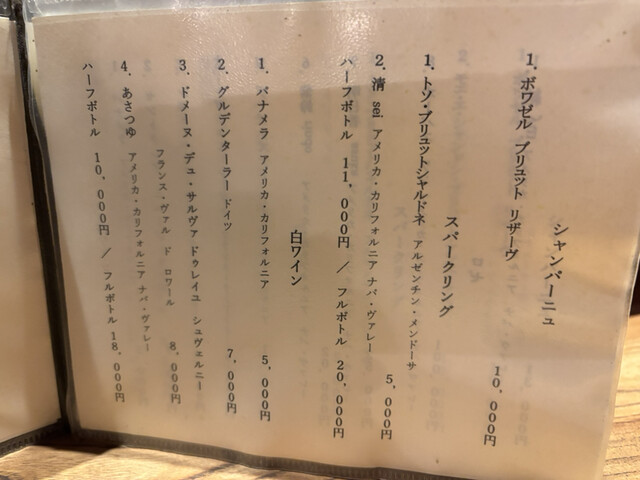 シャンパーニュ
1. ボワゼル ブリュット リザーヴ
10,000円
スパークリング
1. トソ・ブリュットシャルドネ アルゼンチン・メンドーサ
5,000円
2. 清 sei アメリカ・カリフォルニア ナパ・ヴァレー
ハーフボトル 11,000円 / フルボトル 20,000円
白ワイン
1. パナメラ アメリカ・カリフォルニア
5,000円
2. グルデンターラー ドイツ
7,000円
3. ドメーヌ・デュ・サルヴァ ドゥレイユ シュヴェルニー
フランス・ヴァル ド ロワール
8,000円
4. あさつゆ アメリカ・カリフォルニア ナパ・ヴァレー
ハーフボトル 10,000円 / フルボトル 18,000円